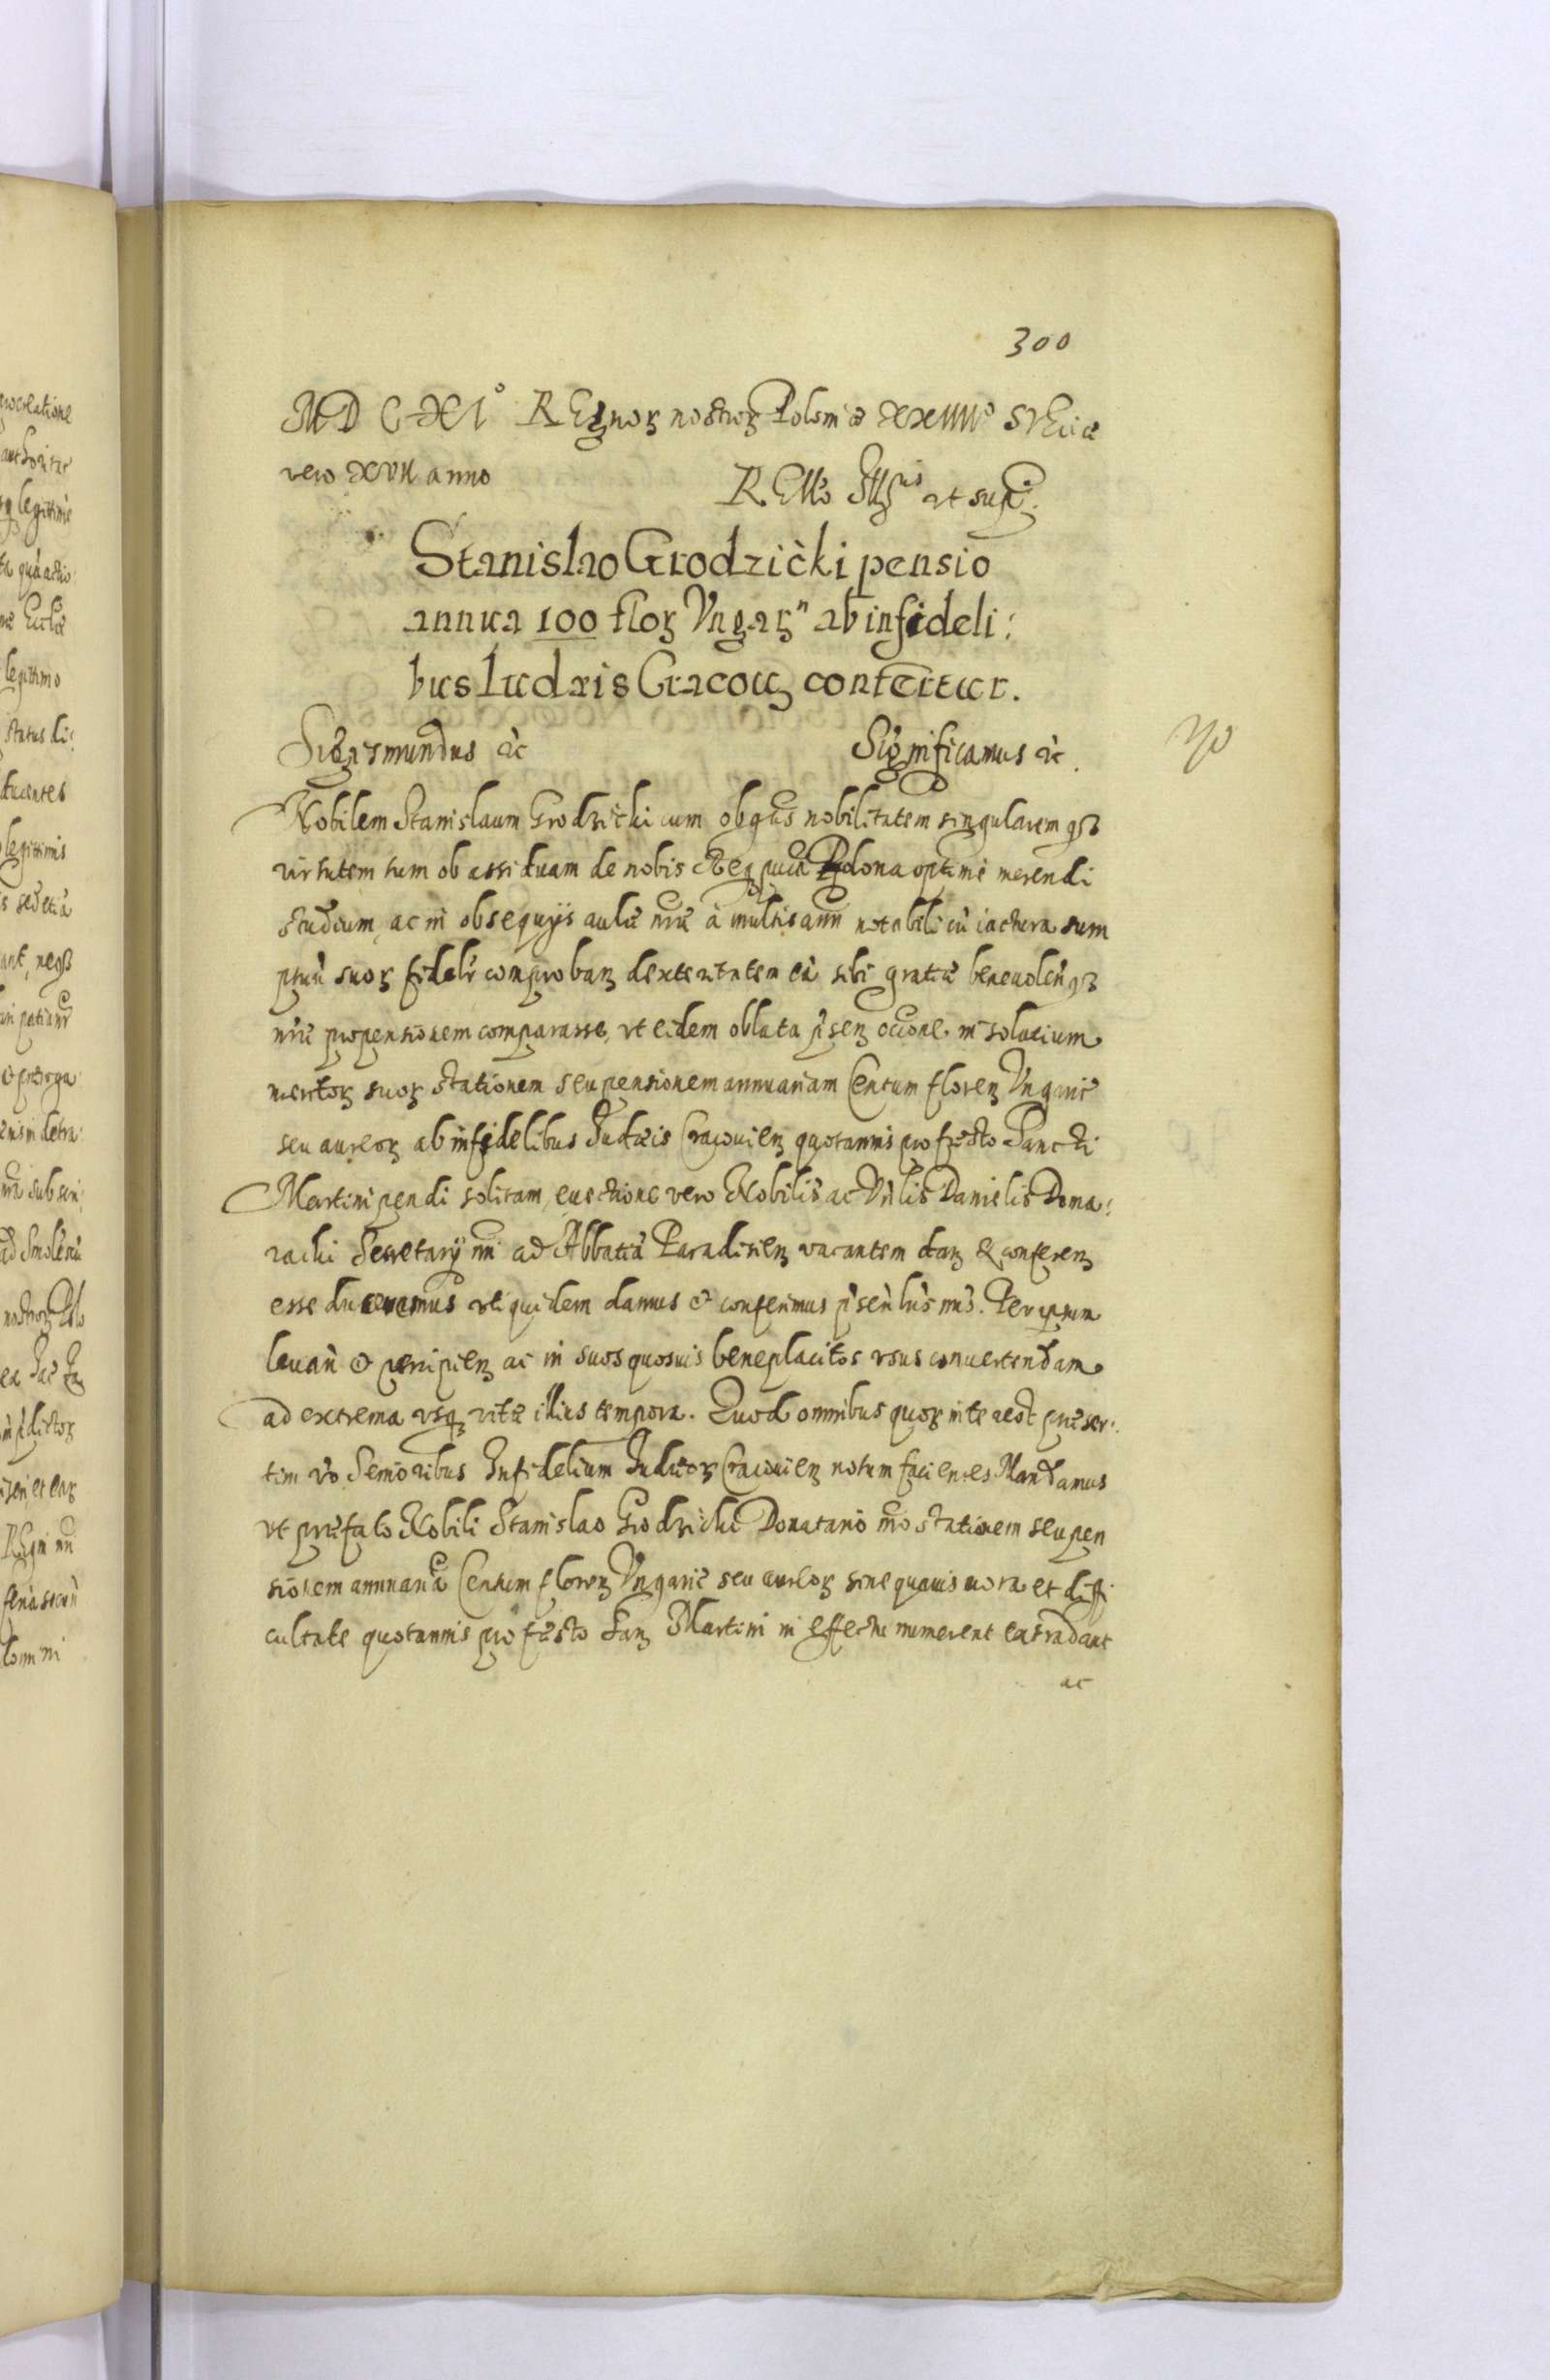 300
MDCXIº REgnoꝝ nostroꝝ Poloniæ XXIIIIº SVEciæ
vero XVII anno
R Ello Illꝫ ut supꝛ.
Stanislao Grodzicki pensio
annua 100 floꝝ Vngaꝝ ab infideli:
bus Iudæis Cracouꝫ confertur.
Sigismundus &c Significamus &c.
Nobilem Stanislaum Grodzicki cum ob gñis nobilitatem singularem qꝫ
virtutem tum ob assiduam de nobis et Reqpuca Polona optime merendi
studium, ac in obsequijs aulæ nræ à multis ann notabili cũ iactura sum
ptuũ suoꝝ fideliř comprobaꝫ dexteritatem eã sibi gratiæ beneuolenqꝫ
nræ propensionem comparasse, vt eidem oblata pñseꝫ occone in solatium
meritoꝝ suoꝝ stationem seu pensionem annuariam Centum floreꝫ Vngaric
seu aureoꝝ ab infidelibus Iudæis Cracouieꝫ quotannis pro festo Sancti
Martini pendi solitam, euectione vero Nobilis ac Vnlis Danielis Dona:
racki Secretarij nri ad Abbatiã Paradisieꝫ vacantem daꝫ & confereꝫ
esse duxeramus uti quidem damus & conferimus pñsen lris nris. Per ipsum
leuañ & percipieꝫ ac in suos quosuis beneplacitos vsus conuertendam
ad extrema vsqꝫ vitæ illius tempora. Quod omnibus quoꝝ interest præser:
tim vo Senioribus Infidelium Iudæoꝝ Cracouieꝫ notum facientes Mandamus
vt præfato Nobili Stanislao Grodzicki Donatario nro stationem seu pen
sionem annuariã Centum floreꝫ Vngaric seu aureoꝝ sine quauis mora et diffi
cultate quotannis pro festo Saꝫ Martini in effectu numerent extradant
ac